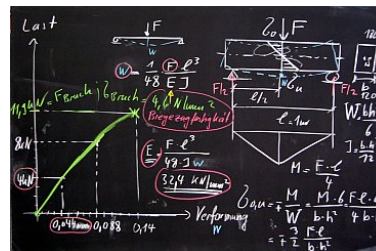 Last
F
w = 1/48 F·l³/E J
11,3kN = F Bruch ; σ Bruch = 4,6 N/mm²
Biegezugfestigkeit
8kN
E = F·l³/48·J w
4kN
32,4 kN/mm²
0,044mm 0,088 0,14 Verformung
w
F
σo
w
F/2 σu F/2
l/2
l = 1m
M = F·l/4
σo,u = ∓ M/W = M·6/b·h²
= ∓ 3/2 F·l/b·h²
W = b·h²/6